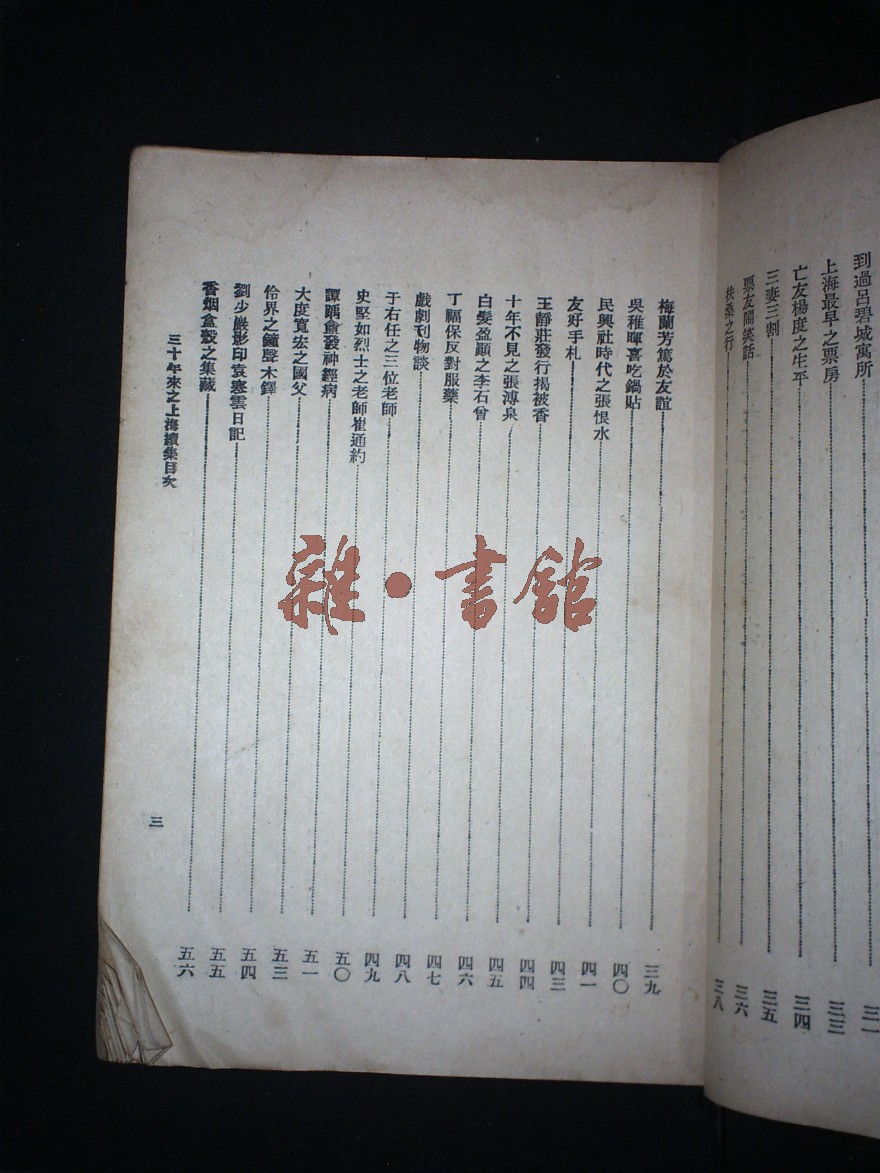 到過呂碧城寓所 三一
上海最早之票房 三三
亡友楊度之生平 三四
三妻三割 三五
票友鬧笑話 三六
扶桑之行 三八
梅蘭芳篤於友誼 三九
吳稚暉喜吃鍋貼 四〇
民興社時代之張恨水 四一
友好手札 四三
王靜莊發行揭被香 四四
十年不見之張溥泉 四五
白髮盈顚之李石曾 四六
丁福保反對服藥 四七
戲劇刊物談 四八
于右任之三位老師 四九
史堅如烈士之老師崔通約 五〇
譚踽盦發神經病 五一
大度寬宏之國父 五三
伶界之鐘聲木鐸 五四
劉少巖影印袁寒雲日記 五五
香烟盒殼之集藏 五六
三十年來之上海續集目次 三
雜·書館